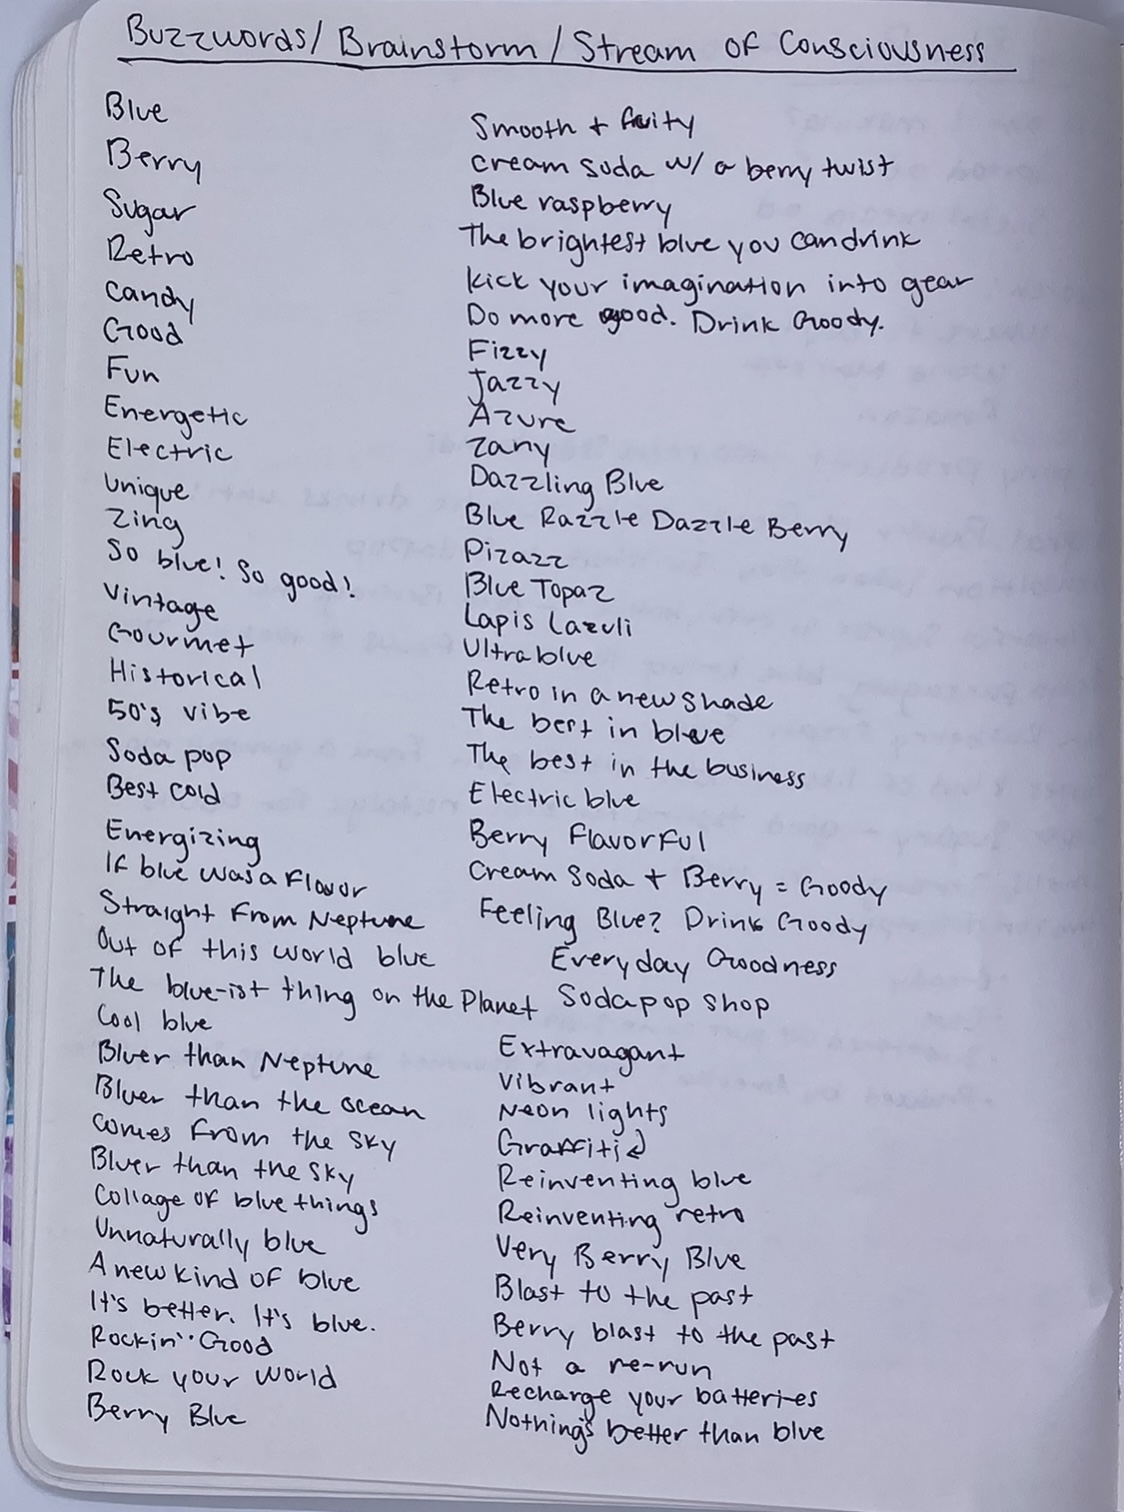 Buzzwords/ Brainstorm / Stream of Consciousness
Blue
Berry
Sugar
Retro
Candy
Good
Fun
Energetic
Electric
Unique
Zing
So blue! So good!
Vintage
Gourmet
Historical
50's vibe
Soda pop
Best cold
Energizing
If blue was a flavor
Straight from Neptune
Out of this world blue
The blue-ist thing on the Planet
Cool blue
Bluer than Neptune
Bluer than the ocean
Comes from the sky
Bluer than the sky
Collage of blue things
Unnaturally blue
A new kind of blue
It's better. It's blue.
Rockin' Good
Rock your world
Berry Blue
Smooth + fruity
cream soda w/ a berry twist
Blue raspberry
The brightest blue you can drink
kick your imagination into gear
Do more good. Drink Goody.
Fizzy
Jazzy
Azure
Zany
Dazzling Blue
Blue Razzle Dazzle Berry
Pizazz
Blue Topaz
Lapis Lazuli
Ultra blue
Retro in a new shade
The best in blue
The best in the business
Electric blue
Berry Flavorful
Cream Soda + Berry = Goody
Feeling Blue? Drink Goody
Everyday Goodness
Sodapop shop
Extravagant
Vibrant
Neon lights
Graffiti
Reinventing blue
Reinventing retro
Very Berry Blue
Blast to the past
Berry blast to the past
Not a re-run
Recharge your batteries
Nothing's better than blue